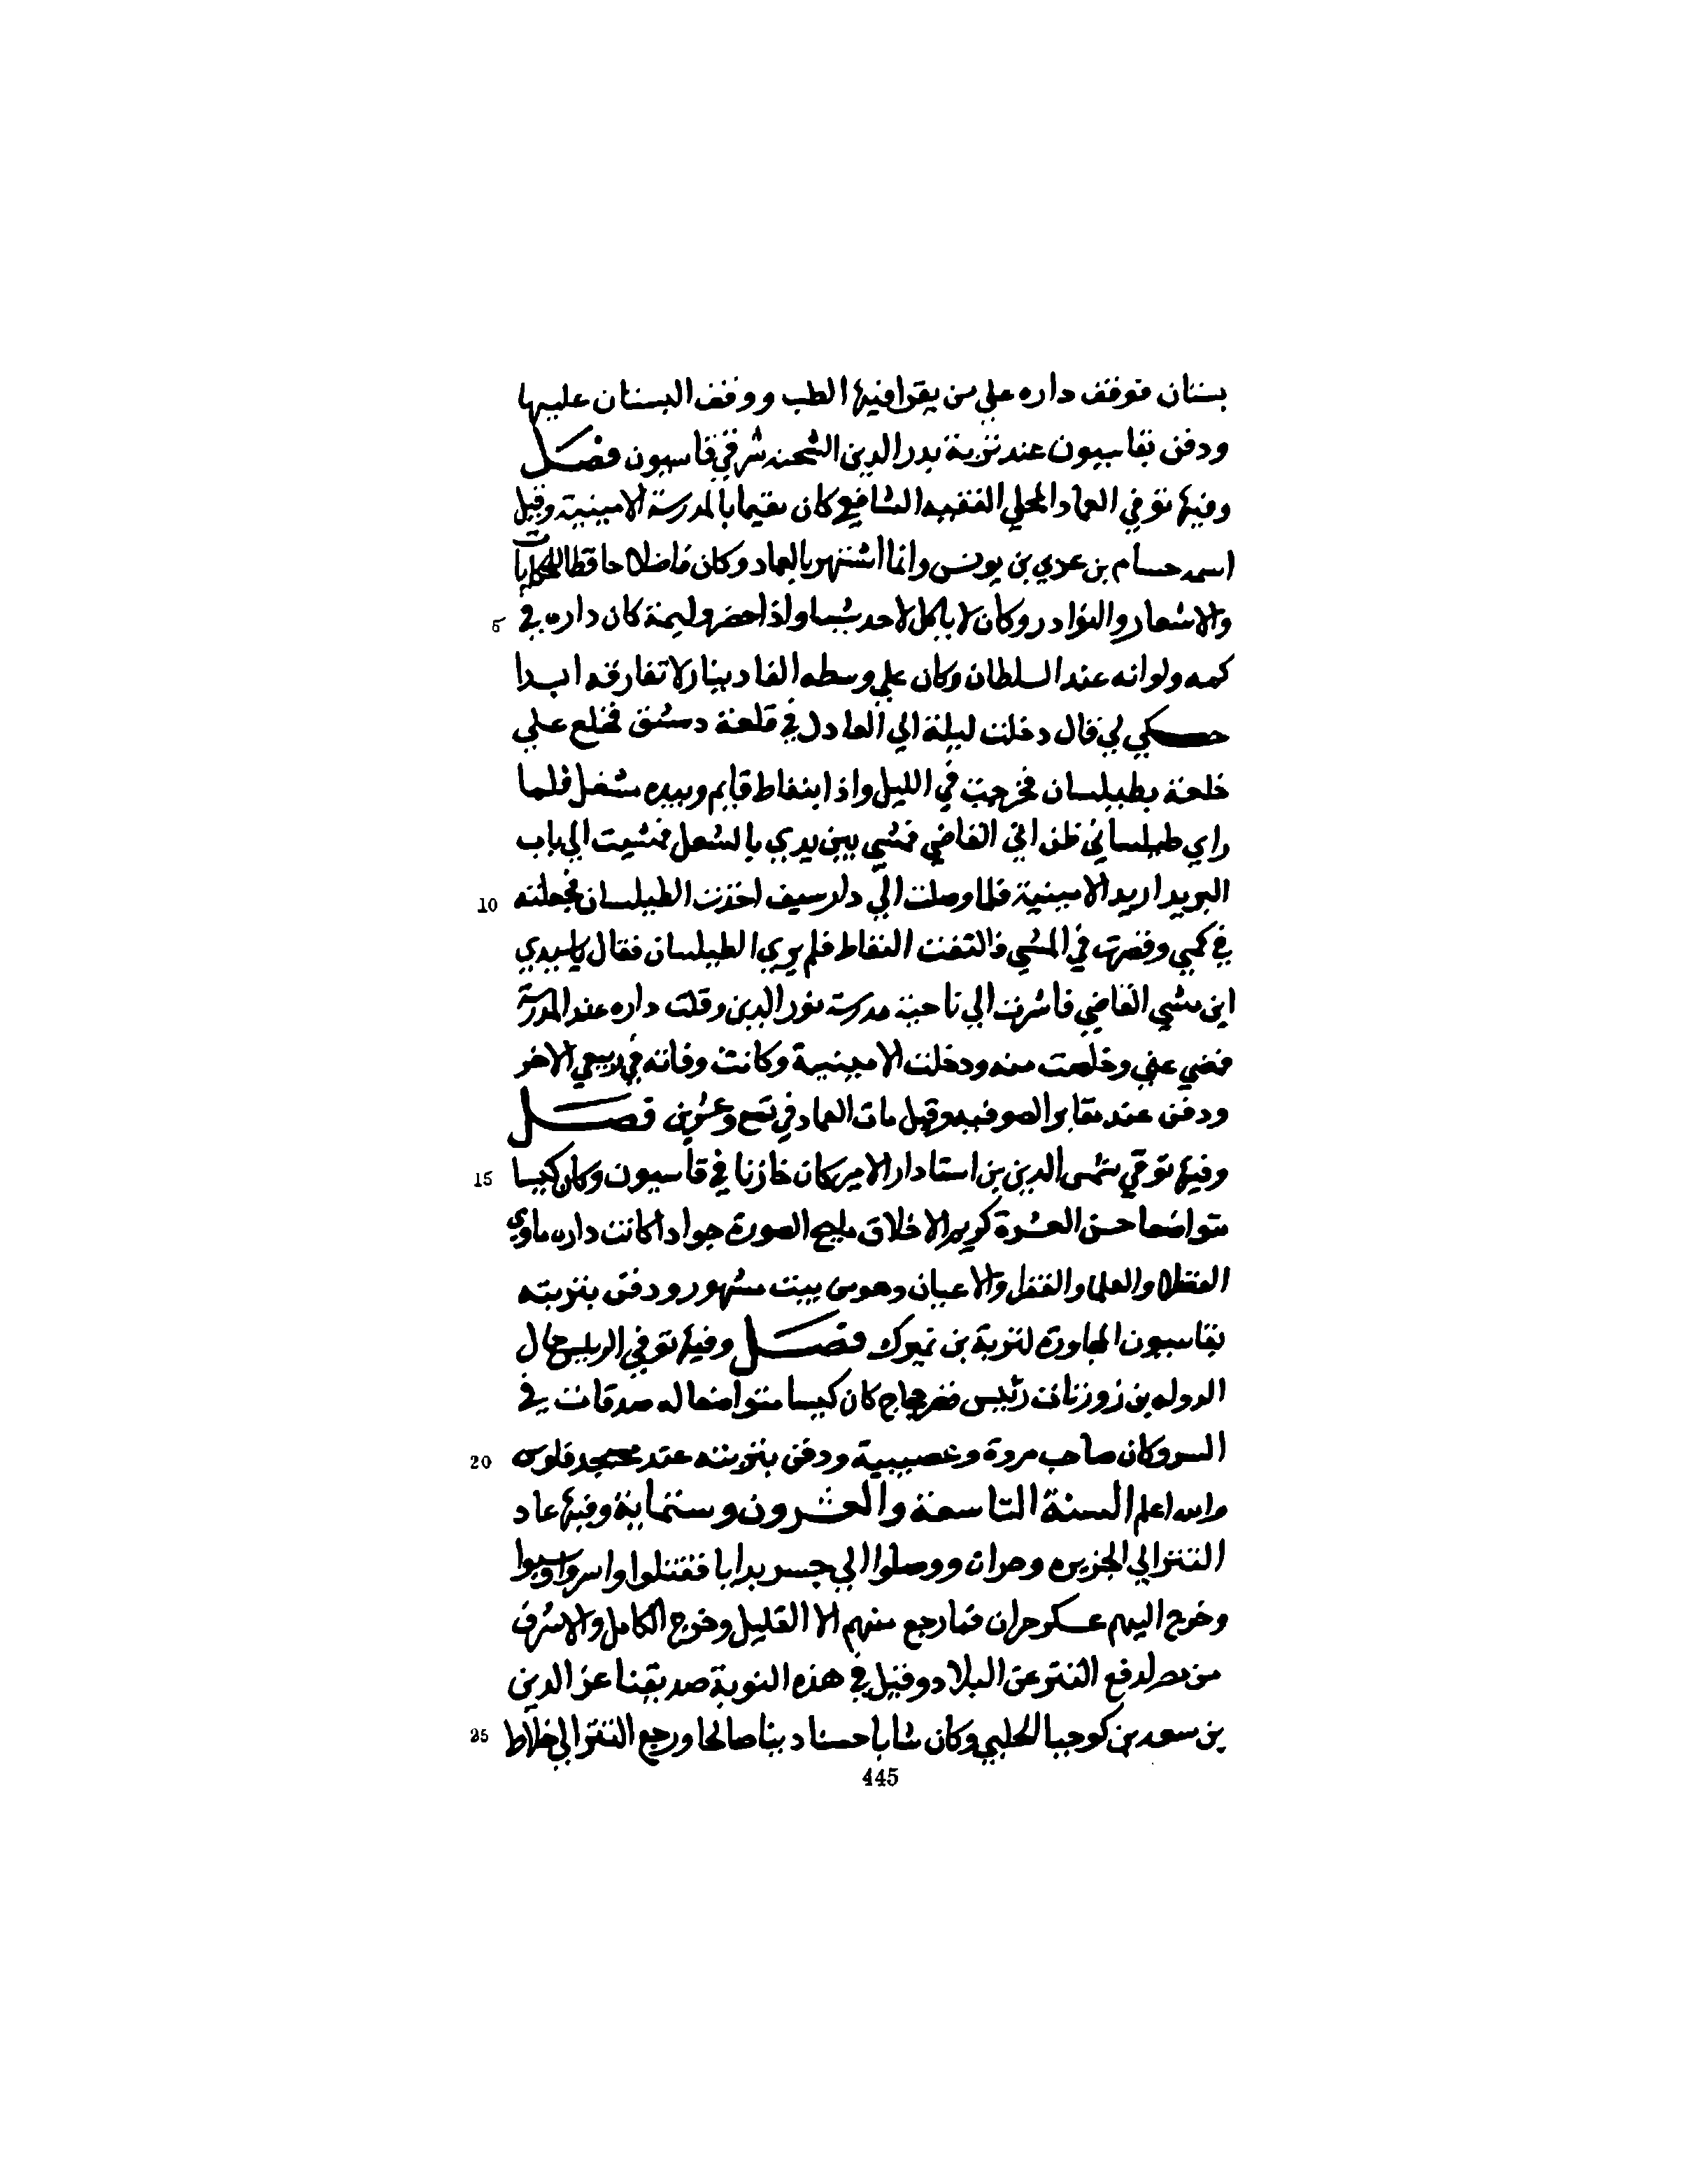 بستان فوقف داره علي من يقرا فيها الطب ووقف البستان عليها
ودفن بقاسيون عند تربة بدر الدين الشحنه شرقي قاسيون فصل
وفيها توفي العماد المحلي الفقيه الشافعي كان مقيما بالمدرسة الامينية وقيل
اسمه حسام بن عدي بن يونس وانما اشتهر بالعماد وكان فاضلا حافظا للحكايات
والاشعار والنوادر وكان لا ياكل لاحد شيا واذا حضر وليمة كان داره في 5
كمه ولو انه عند السلطان وكان علي وسطه الفا دينار لا تفارقه ابدا
حكي لي قال دخلت ليلة الي العادل في قلعة دمشق فخلع علي
خلعة بطيلسان فخرجت في الليل واذا بنفاط قايم وبيده مشعل فلما
راي طيلساني ظن اني القاضي فمشي بين يدي بالمشعل فمشيت الي باب
البريد اريد الامينية فلما وصلت الي دار سيف اخذت الطيلسان فجعلته 10
في كمي وقصرت في المشي فالتفت النفاط فلم يري الطيلسان فقال يا سيدي
اين مشي القاضي فاشرت الي ناحية مدرسة نور الدين وقلت داره عند المدرسة
فمضي عني وخلصت منه ودخلت الامينية وكانت وفاته في ربيع الاخر
ودفن عند مقابر الصوفيه وقيل مات العماد في تسع وعشرين فصل
وفيها توفي شمس الدين بن استادار الامير كان خازنا في قاسيون وكان كيسا 15
متواضعا حسن العشرة كريم الاخلاق مليح الصورة جوادا كانت داره ماوي
الفضلا والعلما والفقرا والاعيان وهو من بيت مشهور ودفن بتربته
بقاسيون المجاورة لتربة بن تميرك فصل وفيها توفي الريس جمال
الدوله بن زوزنات رئيس قصر حجاج كان كيسا متواضعا له صدقات في
السر وكان صاحب مروة وعصبيية ودفن بتربته عند مسجد فلوس 20
والله اعلم السنة التاسعة والعشرون وستماية وفيها عاد
التتر الي الجزيره وحران ووصلوا الي جسر بدايا فقتلوا واسروا وسبوا
وخرج اليهم عسكر حران فما رجع منهم الا القليل وخرج الكامل والاشرف
من مصر لدفع التتر عن البلاد وقتل في هذه النوبة صديقنا عز الدين
بن سعد بن كوجبا الحلبي وكان شابا حسنا دينا صالحا ورجع التتر الي خلاط 25
445